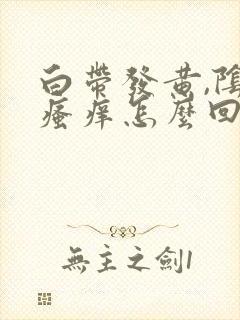 白帶發黃,陰
瘙癢怎麼回
無主之劍1